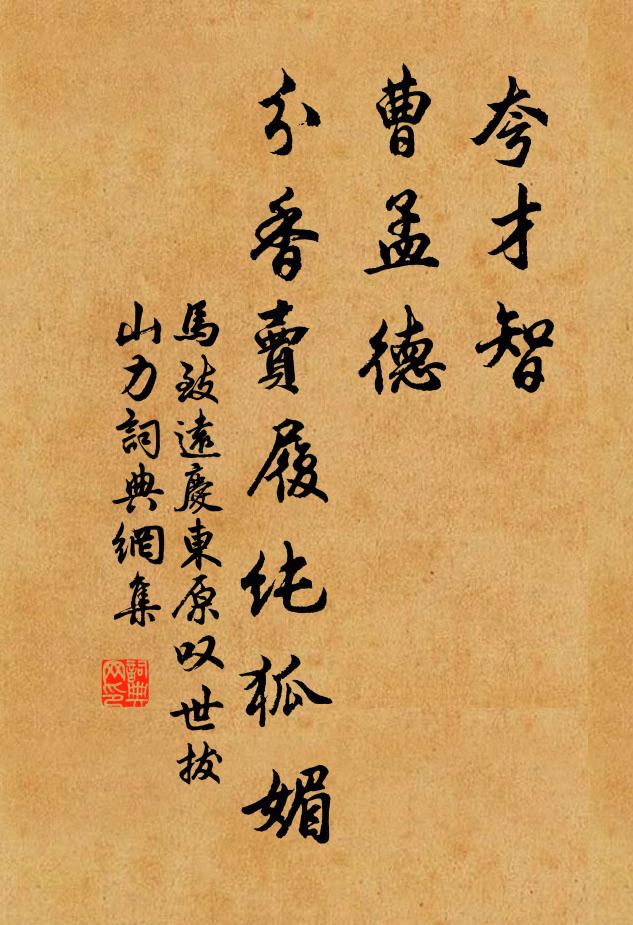 夸才智
曹孟德
分香賣履純狐媚
馬致遠慶東原叹世拔
山力詞典網集
詞典网印